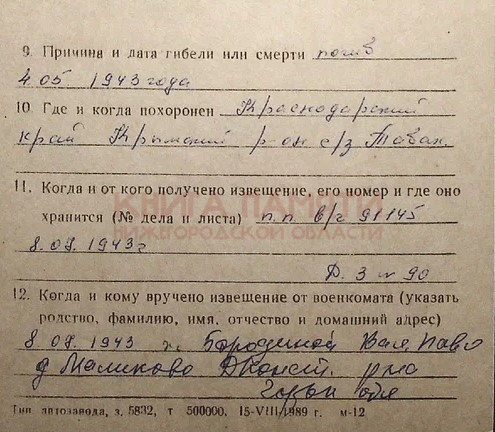 9. Причина и дата гибели или смерти погиб
4.05 1943 года
10. Где и когда похоронен Краснодарский
край Крымский р-он с/з Табак.
11. Когда и от кого получено извещение, его номер и где оно
хранится (№ дела и листа) п.п. в/ч 91145
КНИГА ПАМЯТИ
НИЖЕГОРОДСКОЙ ОБЛАСТИ
8.09.1943г
Д. 3 л 90
12. Когда и кому вручено извещение от военкомата (указать
родство, фамилию, имя, отчество и домашний адрес)
8.09.1943 Бородиной Вал. Павл
д Маликово Дконст. р-на
Горьк обл
Тип автозавода, з. 5832, т 500000, 15-VIII-1989 г. м-12